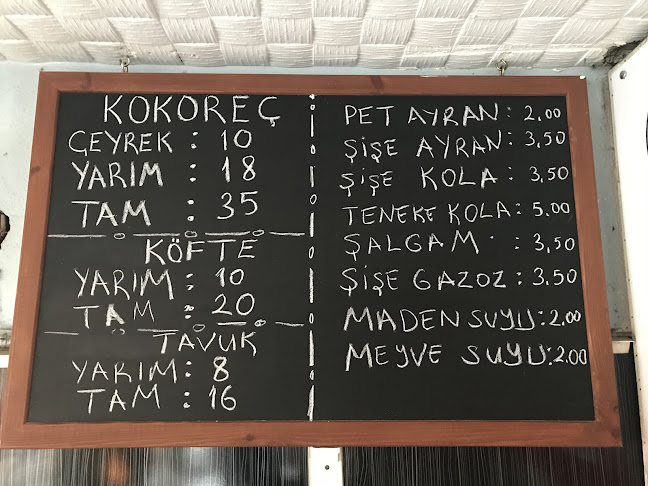 KOKOREÇ
ÇEYREK : 10
YARIM : 18
TAM : 35
KÖFTE
YARIM : 10
TAM : 20
TAVUK
YARIM : 8
TAM : 16
PET AYRAN : 2,00
ŞİŞE AYRAN : 3,50
ŞİŞE KOLA : 3,50
TENEKE KOLA : 5,00
ŞALGAM : 3,50
ŞİŞE GAZOZ : 3,50
MADEN SUYU : 2,00
MEYVE SUYU : 2,00